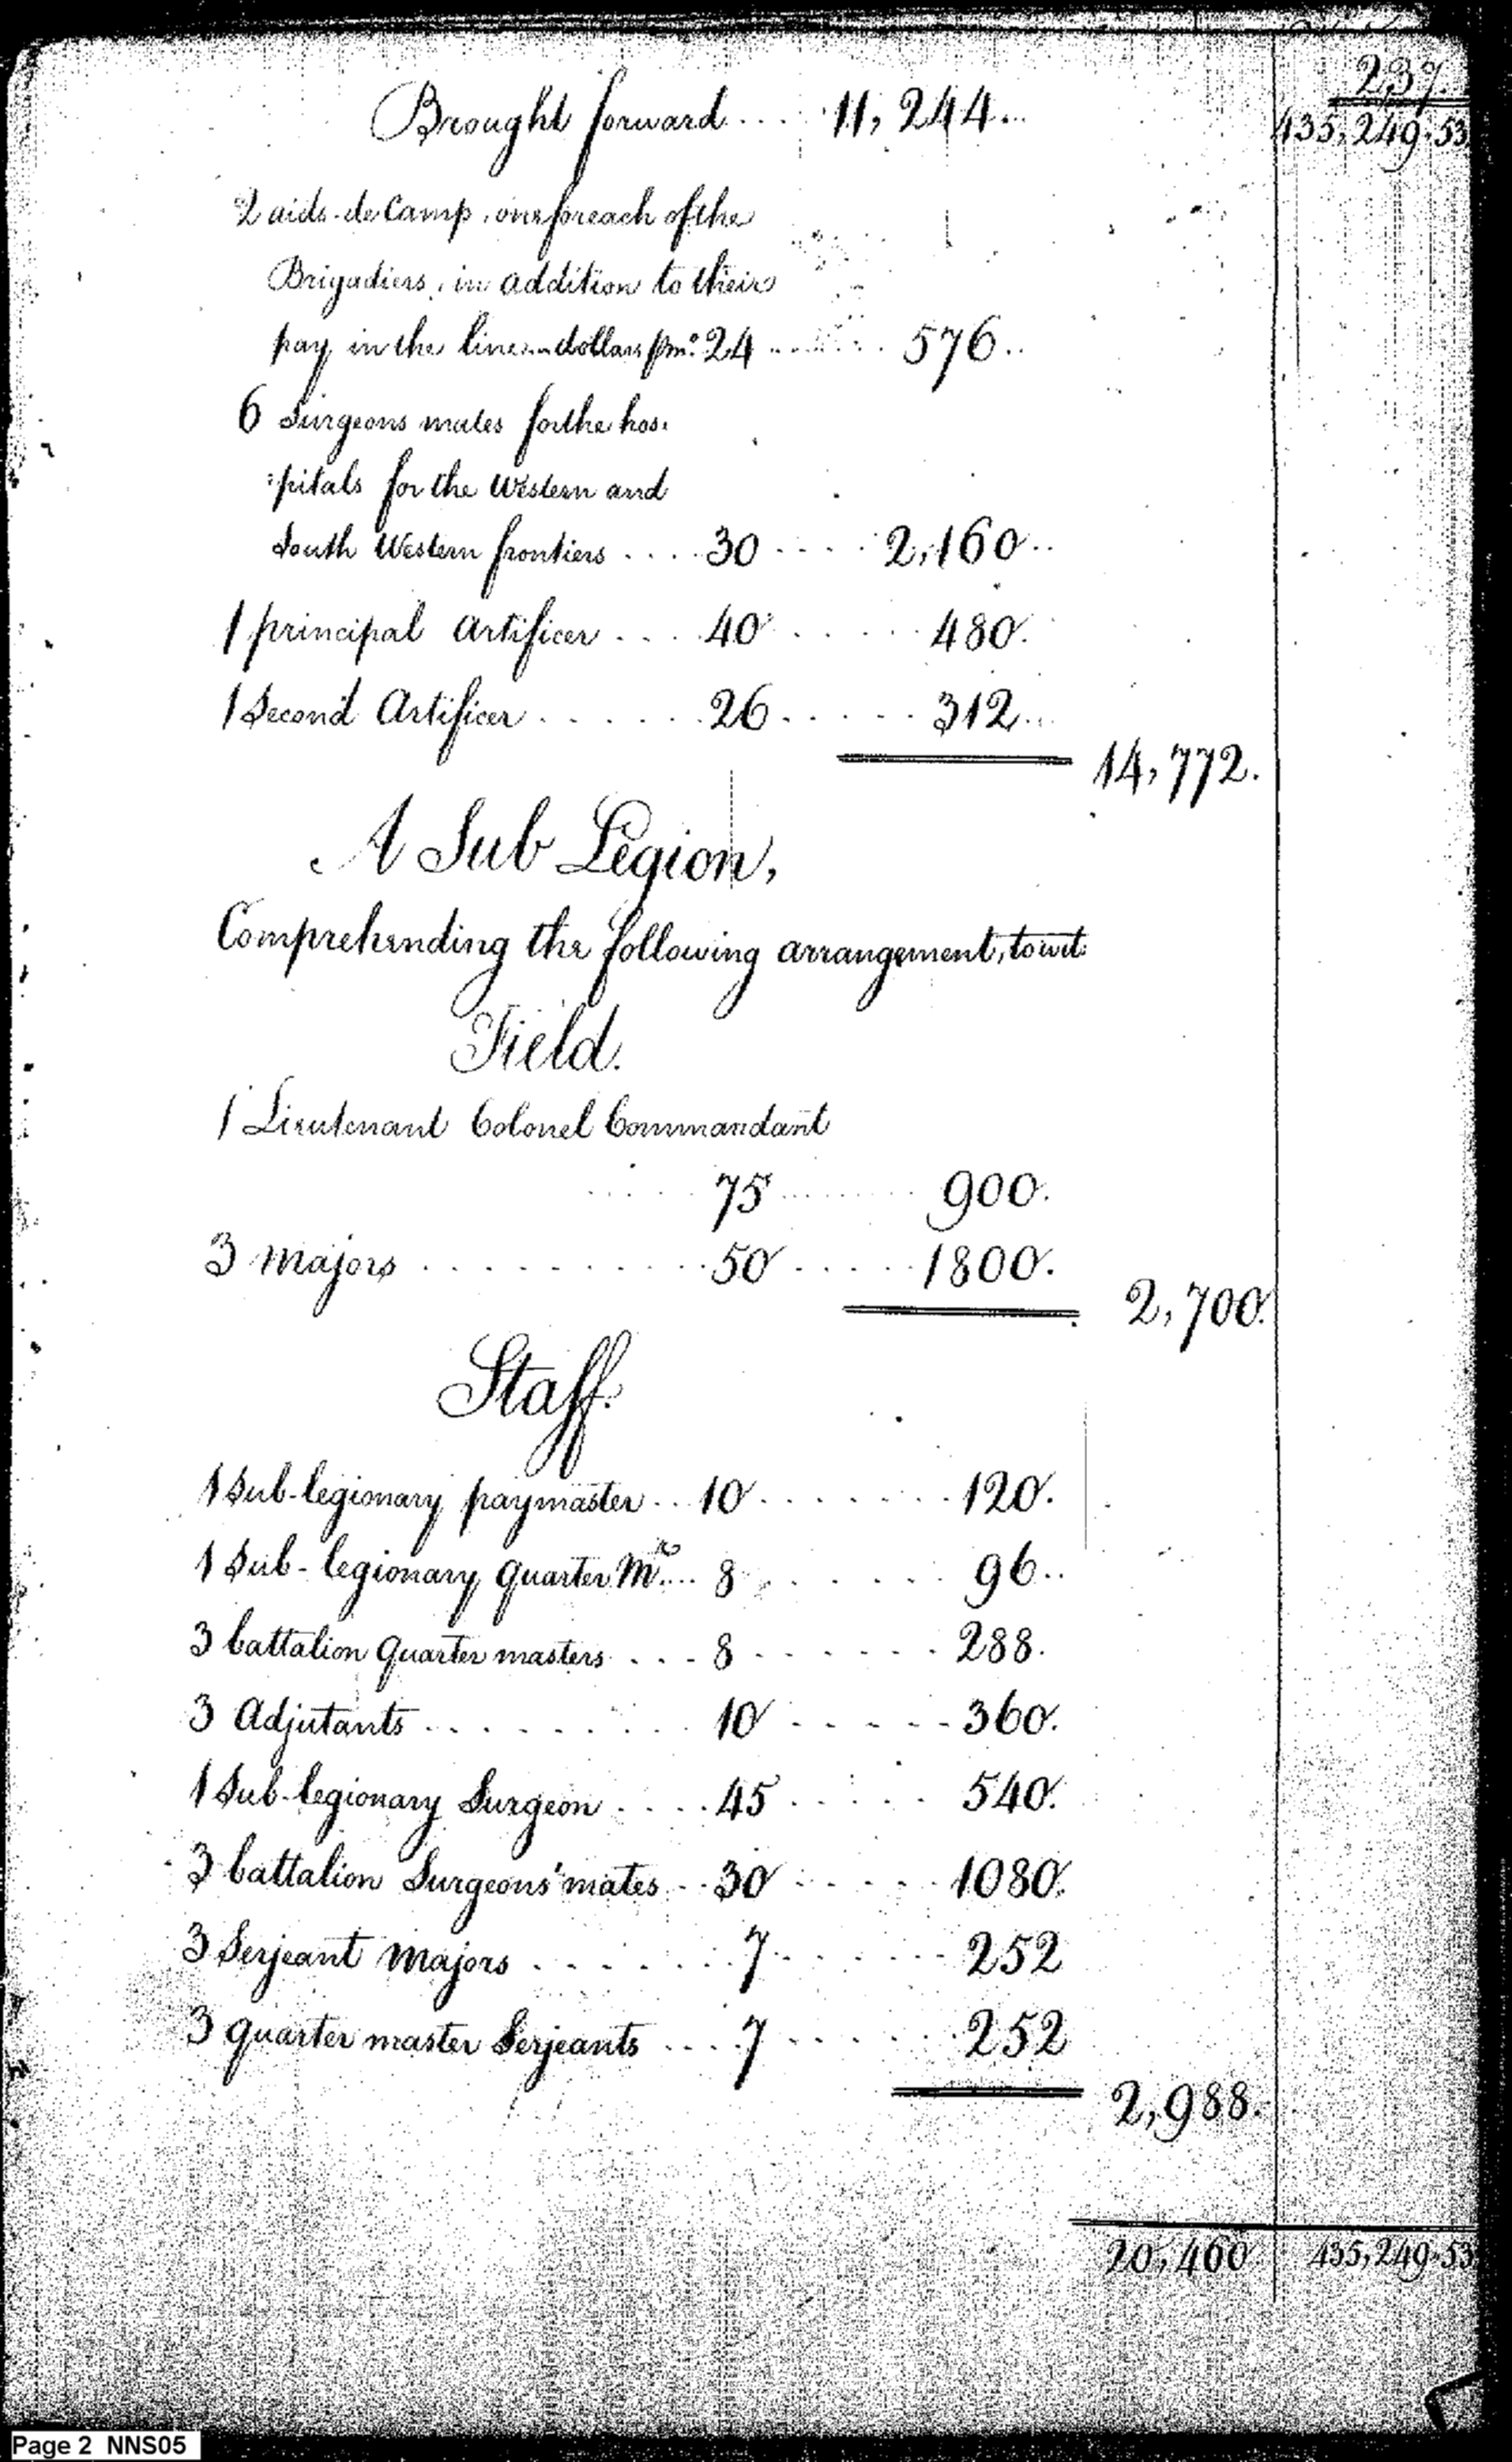 237.
Brought forward .... 11,244... 435,249.53
2 aids-de Camp, one for each of the
Brigadiers, in addition to their
pay in the line... dollars p mo. 24 ........ 576..
6 Surgeons mates for the hos-
:pitals for the Western and
South Western frontiers .... 30 .... 2,160..
1 principal Artificer .... 40 ..... 480.
1 Second Artificer ....... 26 ..... 312..
14,772.
A Sub Legion,
Comprehending the following arrangement, to wit:
Field.
1 Lieutenant Colonel Commandant
..... 75 ........ 900.
3 Majors .......... 50 ..... 1800.
2,700.
Staff.
1 Sub-legionary paymaster ... 10 ....... 120.
1 Sub-legionary Quarter Mr.... 8 ...... 96..
3 battalion Quarter masters ... 8 ...... 288.
3 Adjutants ......... 10 ..... 360.
1 Sub-legionary Surgeon .... 45 ..... 540.
3 battalion Surgeons' mates .. 30 ..... 1080.
3 Serjeant Majors ....... 7 ...... 252
3 quarter master Serjeants .... 7 ...... 252
2,988.
20,460 435,249.53
Page 2 NNS05